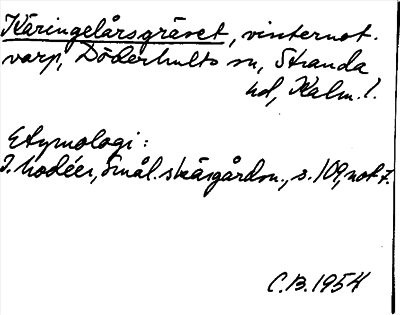 Käringelårsgrävet, vinternot-
varp, Döderhults sn, Stranda
hd, Kalm. l.
Etymologi:
I. Modéer, Smål. skärgårdsn., s. 109, not 7.
C.B. 1954